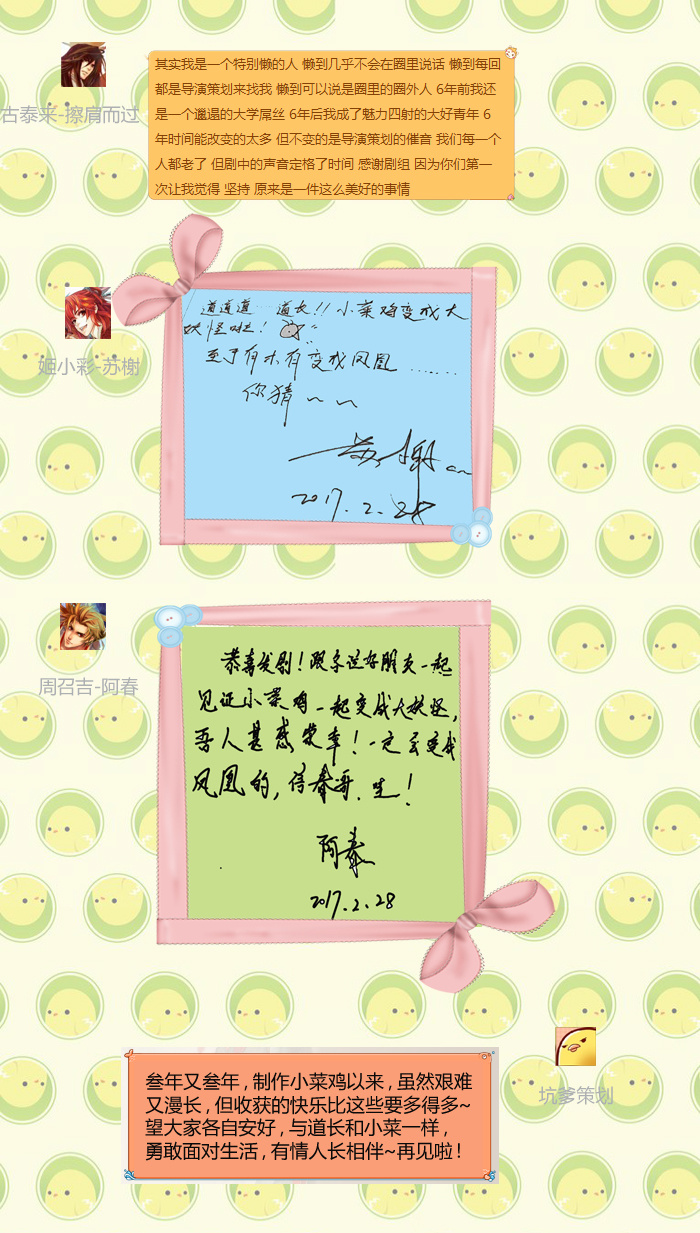 其实我是一个特别懒的人 懒到几乎不会在圈里说话 懒到每回
都是导演策划来找我 懒到可以说是圈里的圈外人 6年前我还
是一个邋遢的大学屌丝 6年后我成了魅力四射的大好青年 6
年时间能改变的太多 但不变的是导演策划的催音 我们每一个
人都老了 但剧中的声音定格了时间 感谢剧组 因为你们第一
次让我觉得 坚持 原来是一件这么美好的事情
古泰来-擦肩而过
道道道……道长!! 小菜鸡变成大
妖怪啦!
至于有木有变成凤凰……
你猜~~
苏榭
2017.2.28
姬小彩-苏榭
恭喜发剧!跟余说好朋友一起
见证小菜鸡一起变成大妖怪,
吾人甚感荣幸!一定会变成
凤凰的,信春哥.生!
阿春
2017.2.28
周召吉-阿春
叁年又叁年,制作小菜鸡以来,虽然艰难
又漫长,但收获的快乐比这些要多得多~
望大家各自安好,与道长和小菜一样,
勇敢面对生活,有情人长相伴~再见啦!
坑爹策划